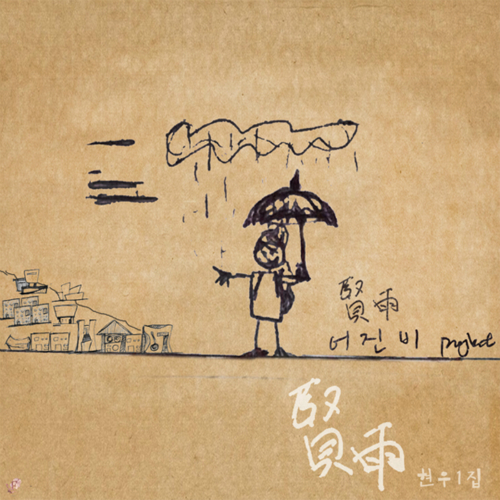 賢雨
어진비 project
賢雨
현우1집